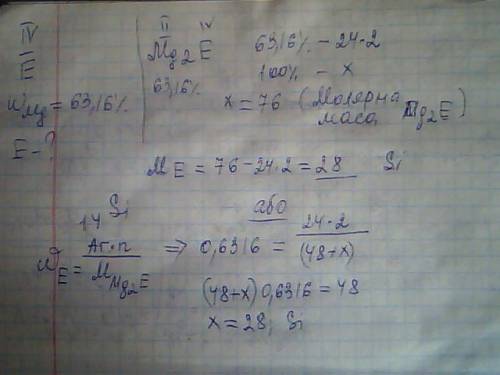 IV
E
WMg = 63,16%
E - ?
II IV
Mg2 E
63,16%
63,16% - 24·2
100% - x
x = 76 (Молярна маса Mg2E)
ME = 76 - 24·2 = 28 Si
14 Si
WE = Ar·n / MMg2E
або
=> 0,6316 = 24·2 / (48+x)
(48+x) 0,6316 = 48
x = 28, Si